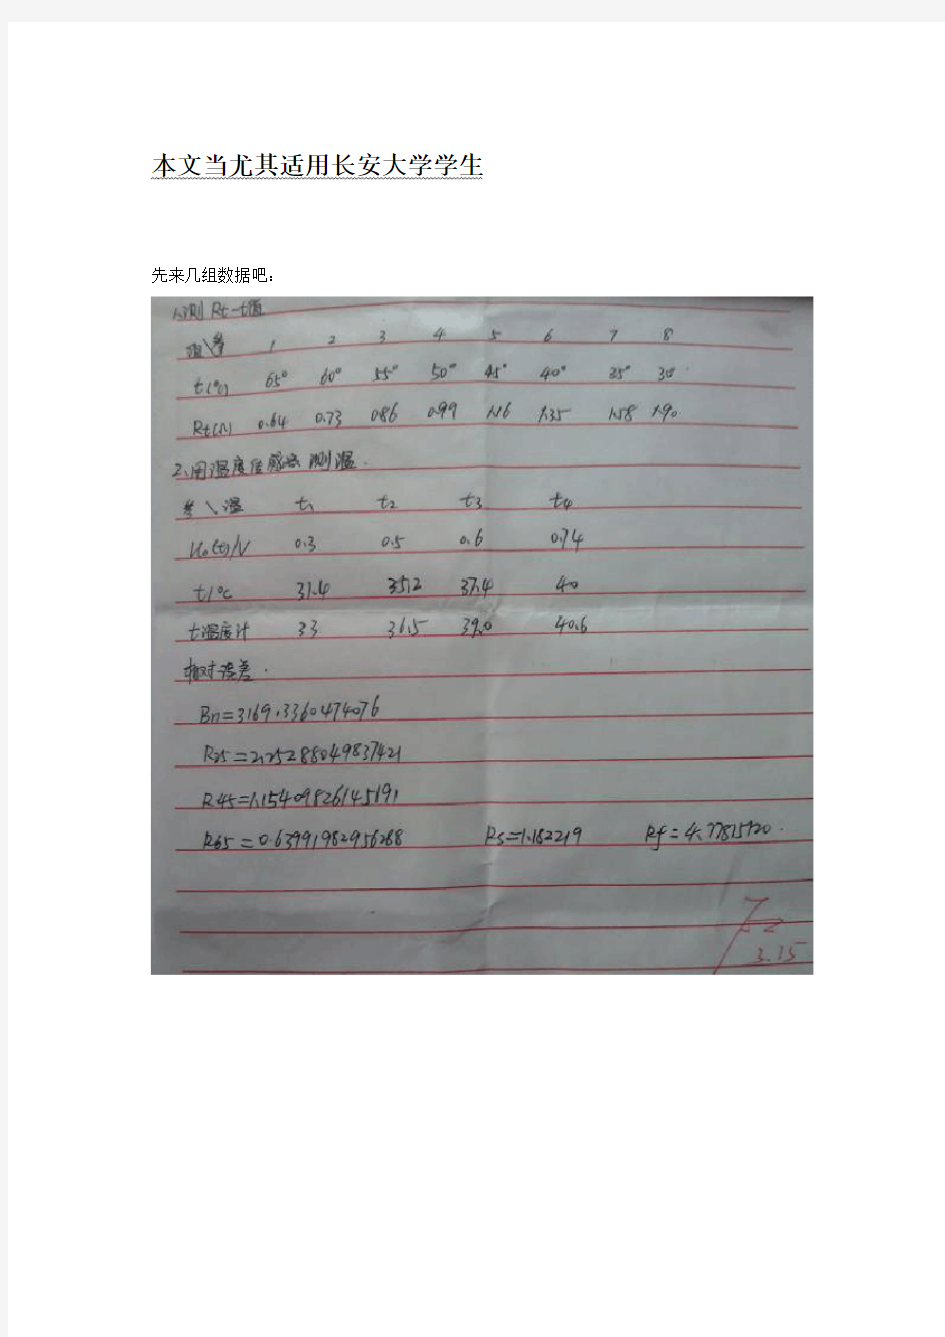 本文当尤其适用长安大学学生
先来几组数据吧：
1、测Rt-t值
1 2 3 4 5 6 7 8
t(℃) 65° 60° 55° 50° 45° 40° 35° 30°
Rt(Ω) 0.64 0.73 0.86 0.99 1.16 1.35 1.58 1.90
2、用温度传感器测温.
t1 t2 t3 t4
U0(t)/V 0.3 0.5 0.6 0.74
t/℃ 31.4 35.2 37.4 40
t温度计 33 36.5 39.0 40.6
相对误差.
Bn=3169.3360474076
R25=2.25288049837421
R45=1.15409826145191
R65=0.63991982956288 Rs=1.182219 Rf=4.77815720.
3.15